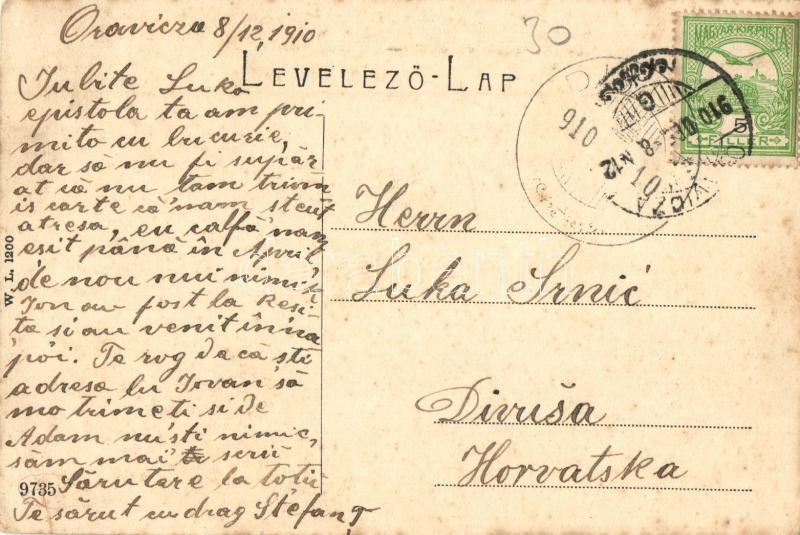 Oravicza 8/12, 1910
30
LEVELEZŐ-LAP
MAGYAR KIR. POSTA
5
FILLÉR
910 DEC 8
N12
910
10
Iubite Luka
epistola ta am pri-
mito cu bucurie,
dar să nu fi supăr
at că nu tam trim
is carte că nam stiut
atresa, eu calfă nam
esit până în April
de nou nui nimi
Ion au fost la Resi
ta si au venit înna
poi. Te rog dacă sti
adresa lu Iovan să
mo trimeti si de
Adam nu sti nimic,
săm mai serii
Sărutare la totii
Te sărut cu drag Stefan
Herrn
Luka Srnić
Divuša
Horvatska
W. L. 1200
9735